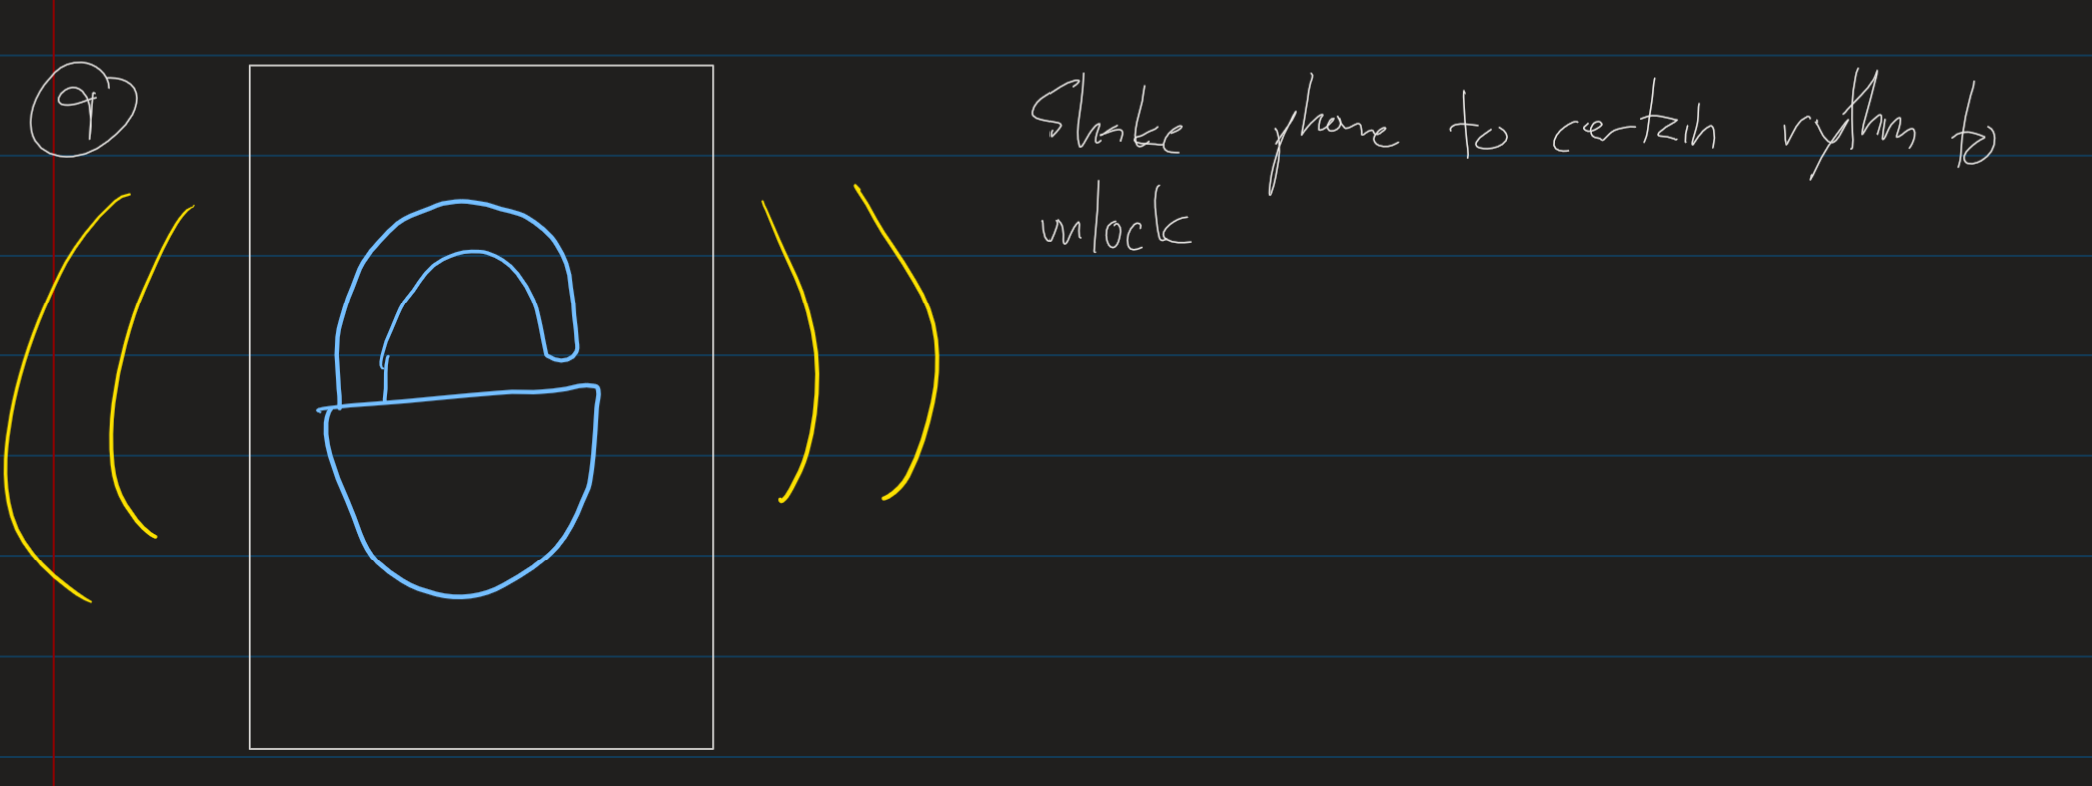 9
Shake phone to certain rythm to
unlock